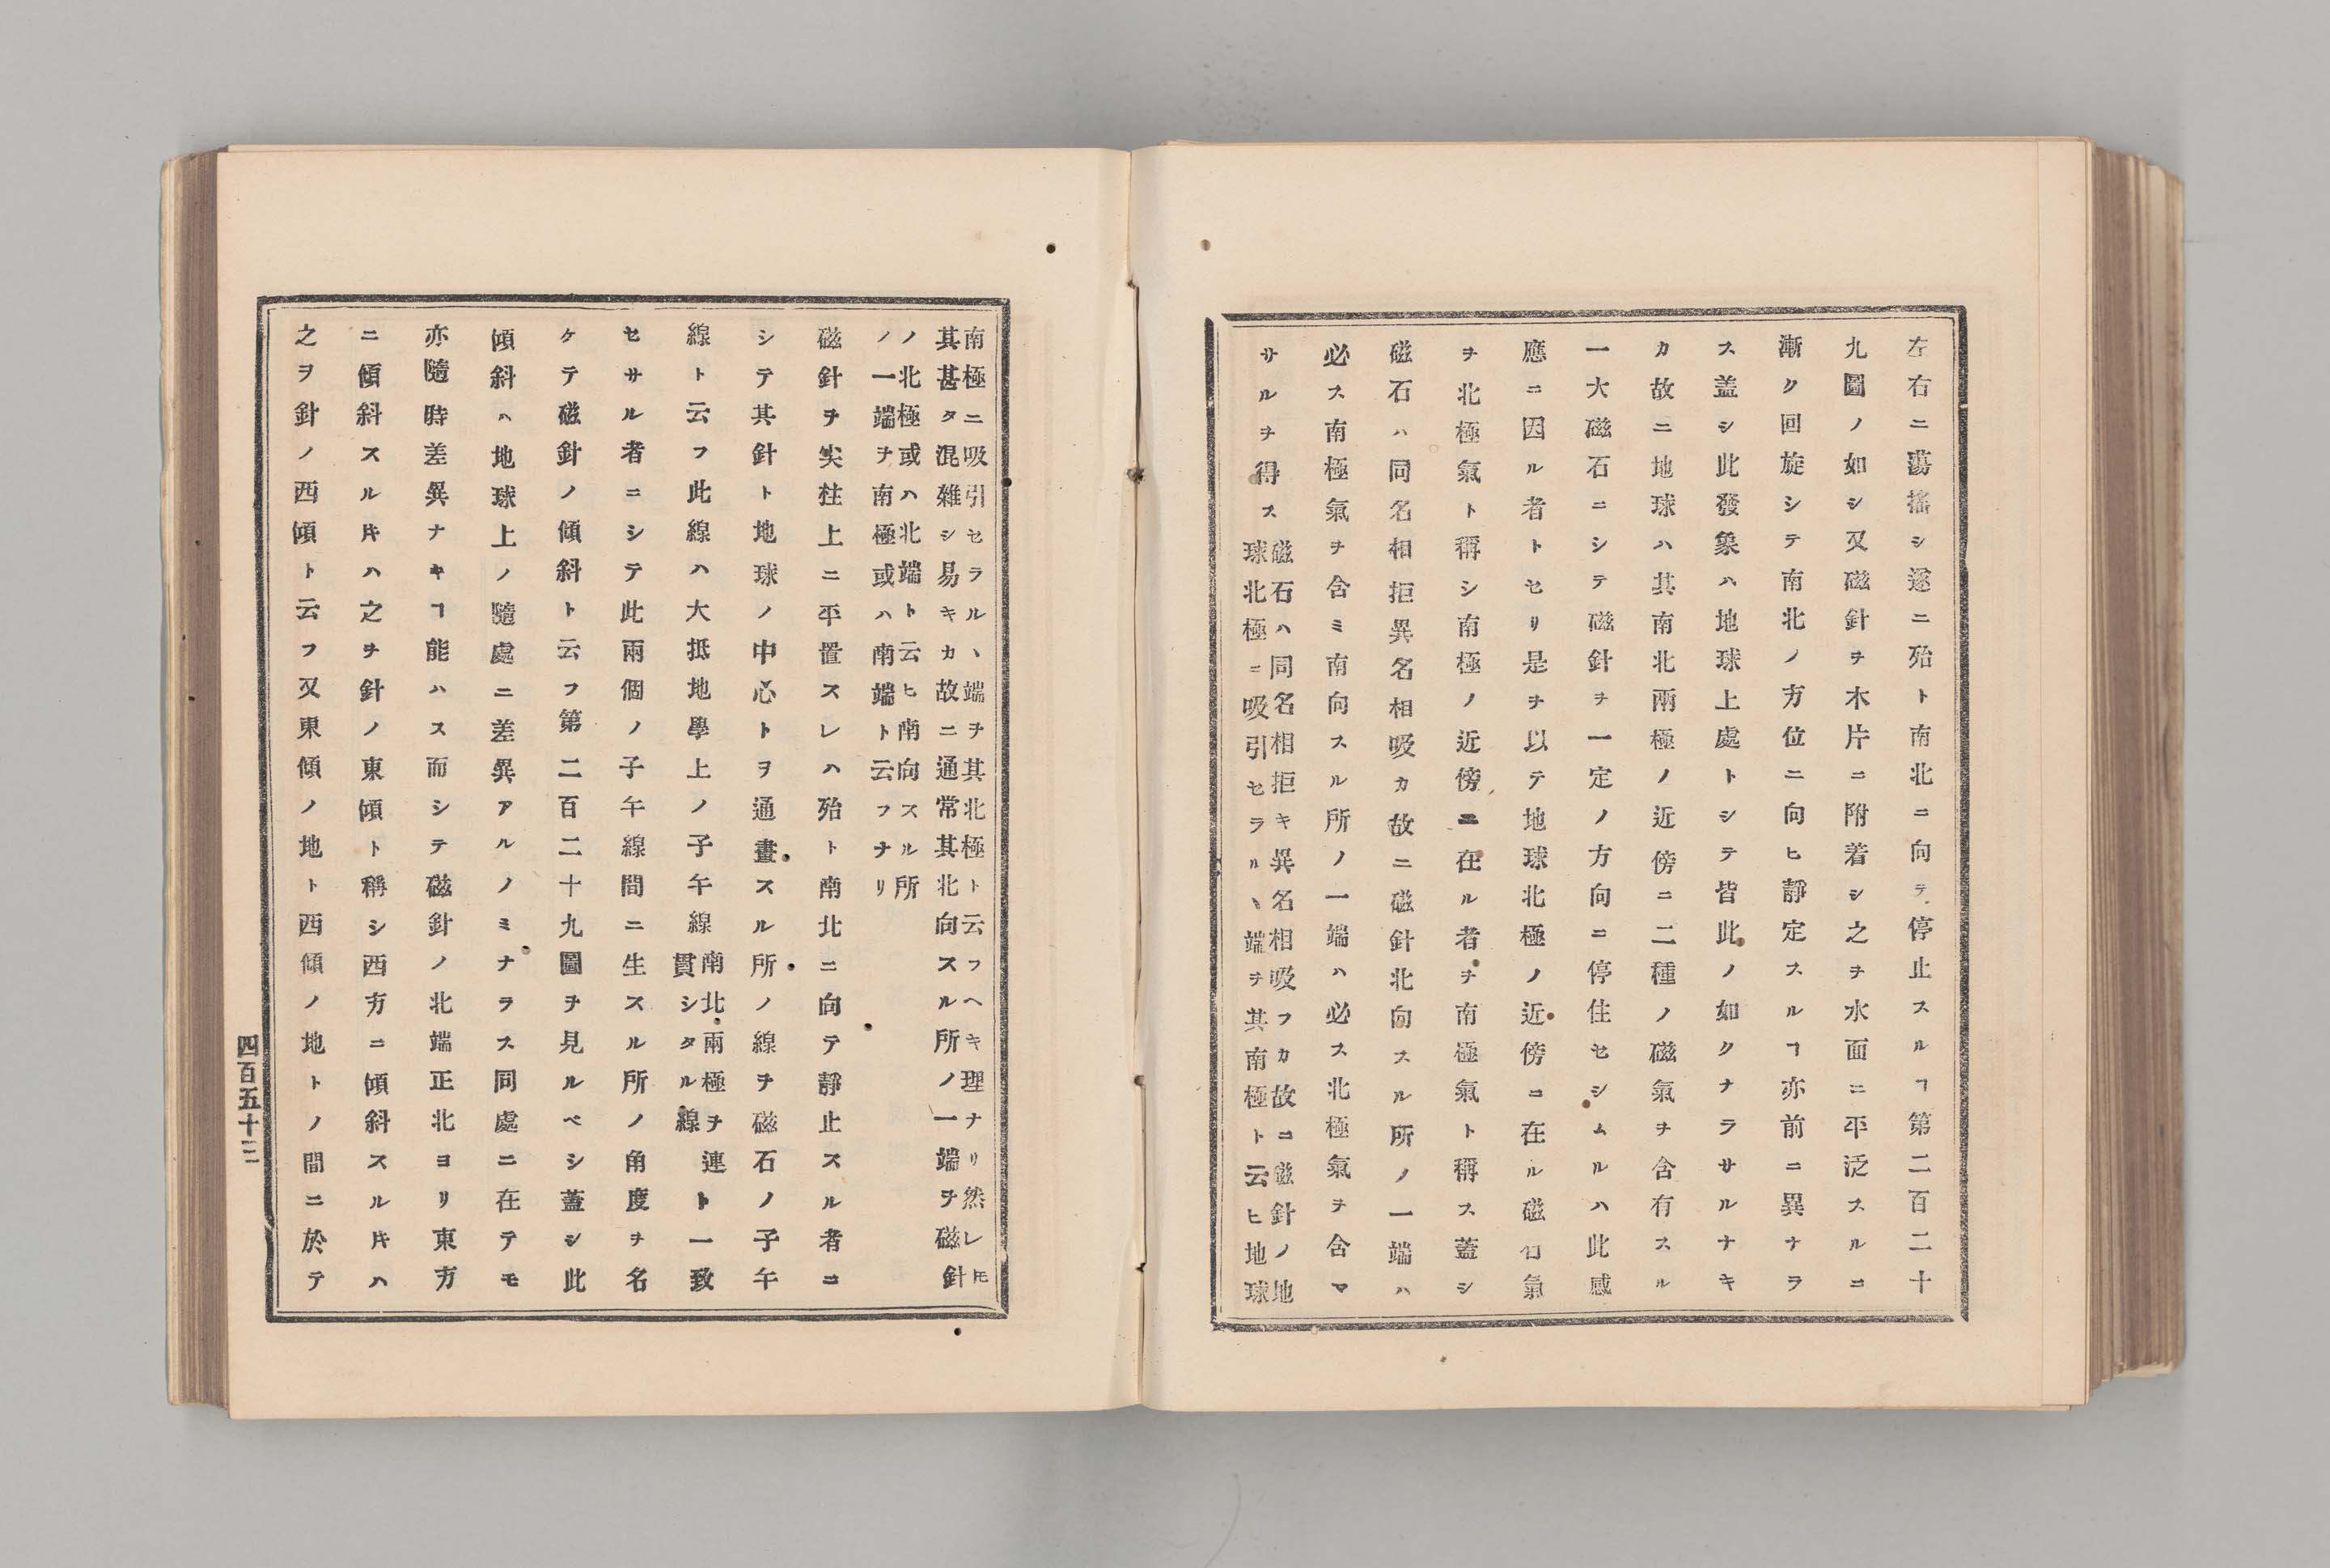 左右ニ蕩搖シ遂ニ殆ト南北ニ向テ停止スルヿ第二百二十
九圖ノ如シ又磁針ヲ木片ニ附着シ之ヲ水面ニ平泛スルニ
漸ク回旋シテ南北ノ方位ニ向ヒ靜定スルヿ亦前ニ異ナラ
ス盖シ此發象ハ地球上處トシテ皆此ノ如クナラサルナキ
カ故ニ地球ハ其南北兩極ノ近傍ニ二種ノ磁氣ヲ含有スル
一大磁石ニシテ磁針ヲ一定ノ方向ニ停住セシムルハ此感
應ニ因ル者トセリ是ヲ以テ地球北極ノ近傍ニ在ル磁石氣
ヲ北極氣ト稱シ南極ノ近傍ニ在ル者ヲ南極氣ト稱ス蓋シ
磁石ハ同名相拒異名相吸カ故ニ磁針北向スル所ノ一端ハ
必ス南極氣ヲ含ミ南向スル所ノ一端ハ必ス北極氣ヲ含マ
サルヲ得ス
磁石ハ同名相拒キ異名相吸フカ故ニ磁針ノ地
球北極ニ吸引セラルヽ端ヲ其南極ト云ヒ地球
南極ニ吸引セラルヽ端ヲ其北極ト云フヘキ理ナリ然レㇳモ
其甚タ混雜シ易キカ故ニ通常其北向スル所ノ一端ヲ磁針
ノ北極或ハ北端ト云ヒ南向スル所
ノ一端ヲ南極或ハ南端ト云フナリ
磁針ヲ尖柱上ニ平置スレハ殆ト南北ニ向テ靜止スル者ニ
シテ其針ト地球ノ中心トヲ通畫スル所ノ線ヲ磁石ノ子午
線ト云フ此線ハ大抵地學上ノ子午線
南北兩極ヲ連
貫シタル線
ト一致
セサル者ニシテ此兩個ノ子午線間ニ生スル所ノ角度ヲ名
ケテ磁針ノ傾斜ト云フ第二百二十九圖ヲ見ルベシ蓋シ此
傾斜ハ地球上ノ隨處ニ差異アルノミナラス同處ニ在テモ
亦隨時差異ナキヿ能ハス而シテ磁針ノ北端正北ヨリ東方
ニ傾斜スル𪜈ハ之ヲ針ノ東傾ト稱シ西方ニ傾斜スル𪜈ハ
之ヲ針ノ西傾ト云フ又東傾ノ地ト西傾ノ地トノ間ニ於テ
四百五十三